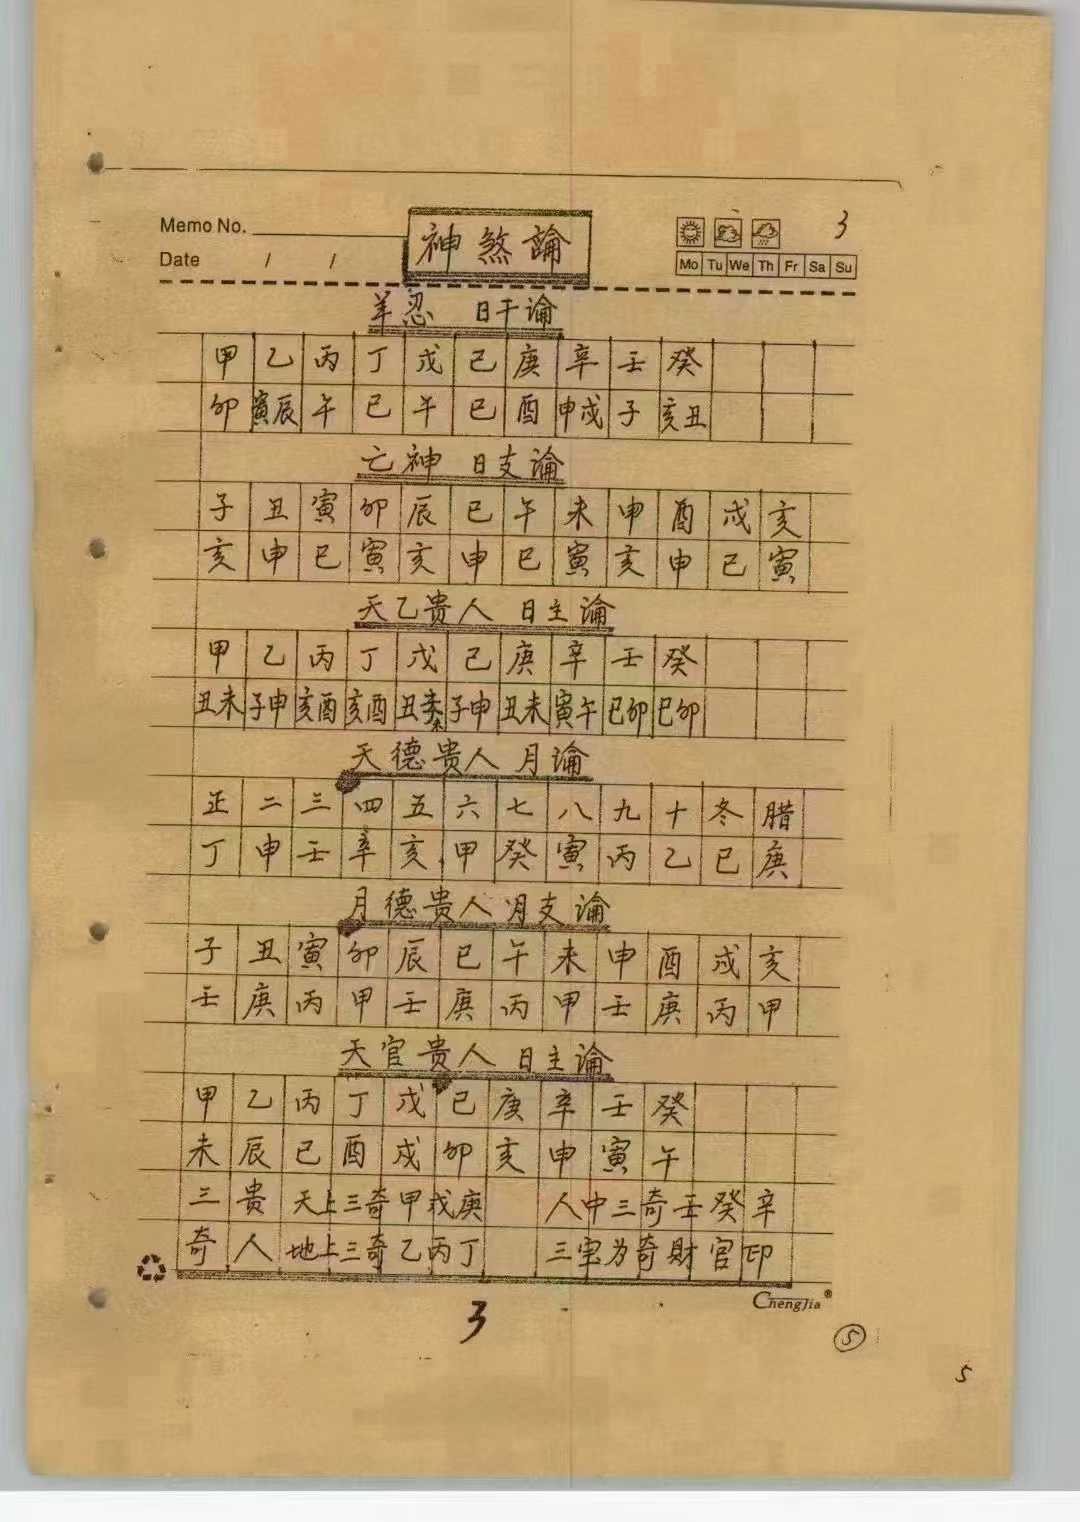 Memo No.
神煞論
3
Date / /
Mo Tu We Th Fr Sa Su
羊忍 日干论
甲 乙 丙 丁 戊 己 庚 辛 壬 癸
卯 寅辰 午 巳 午 巳 酉 申戌 子 亥丑
亡神 日支論
子 丑 寅 卯 辰 巳 午 未 申 酉 戌 亥
亥 申 巳 寅 亥 申 巳 寅 亥 申 巳 寅
天乙贵人 日主論
甲 乙 丙 丁 戊 己 庚 辛 壬 癸
丑未 子申 亥酉 亥酉 丑未 子申 丑未 寅午 巳卯 巳卯
天德贵人 月論
正 二 三 四 五 六 七 八 九 十 冬 腊
丁 申 壬 辛 亥 甲 癸 寅 丙 乙 巳 庚
月德贵人 月支論
子 丑 寅 卯 辰 巳 午 未 申 酉 戌 亥
壬 庚 丙 甲 壬 庚 丙 甲 壬 庚 丙 甲
天官贵人 日主論
甲 乙 丙 丁 戊 己 庚 辛 壬 癸
未 辰 巳 酉 戌 卯 亥 申 寅 午
三贵 天上三奇甲戊庚 人中三奇壬癸辛
奇人 地上三奇乙丙丁 三宝为奇財官印
ChengJia®
3
5
5